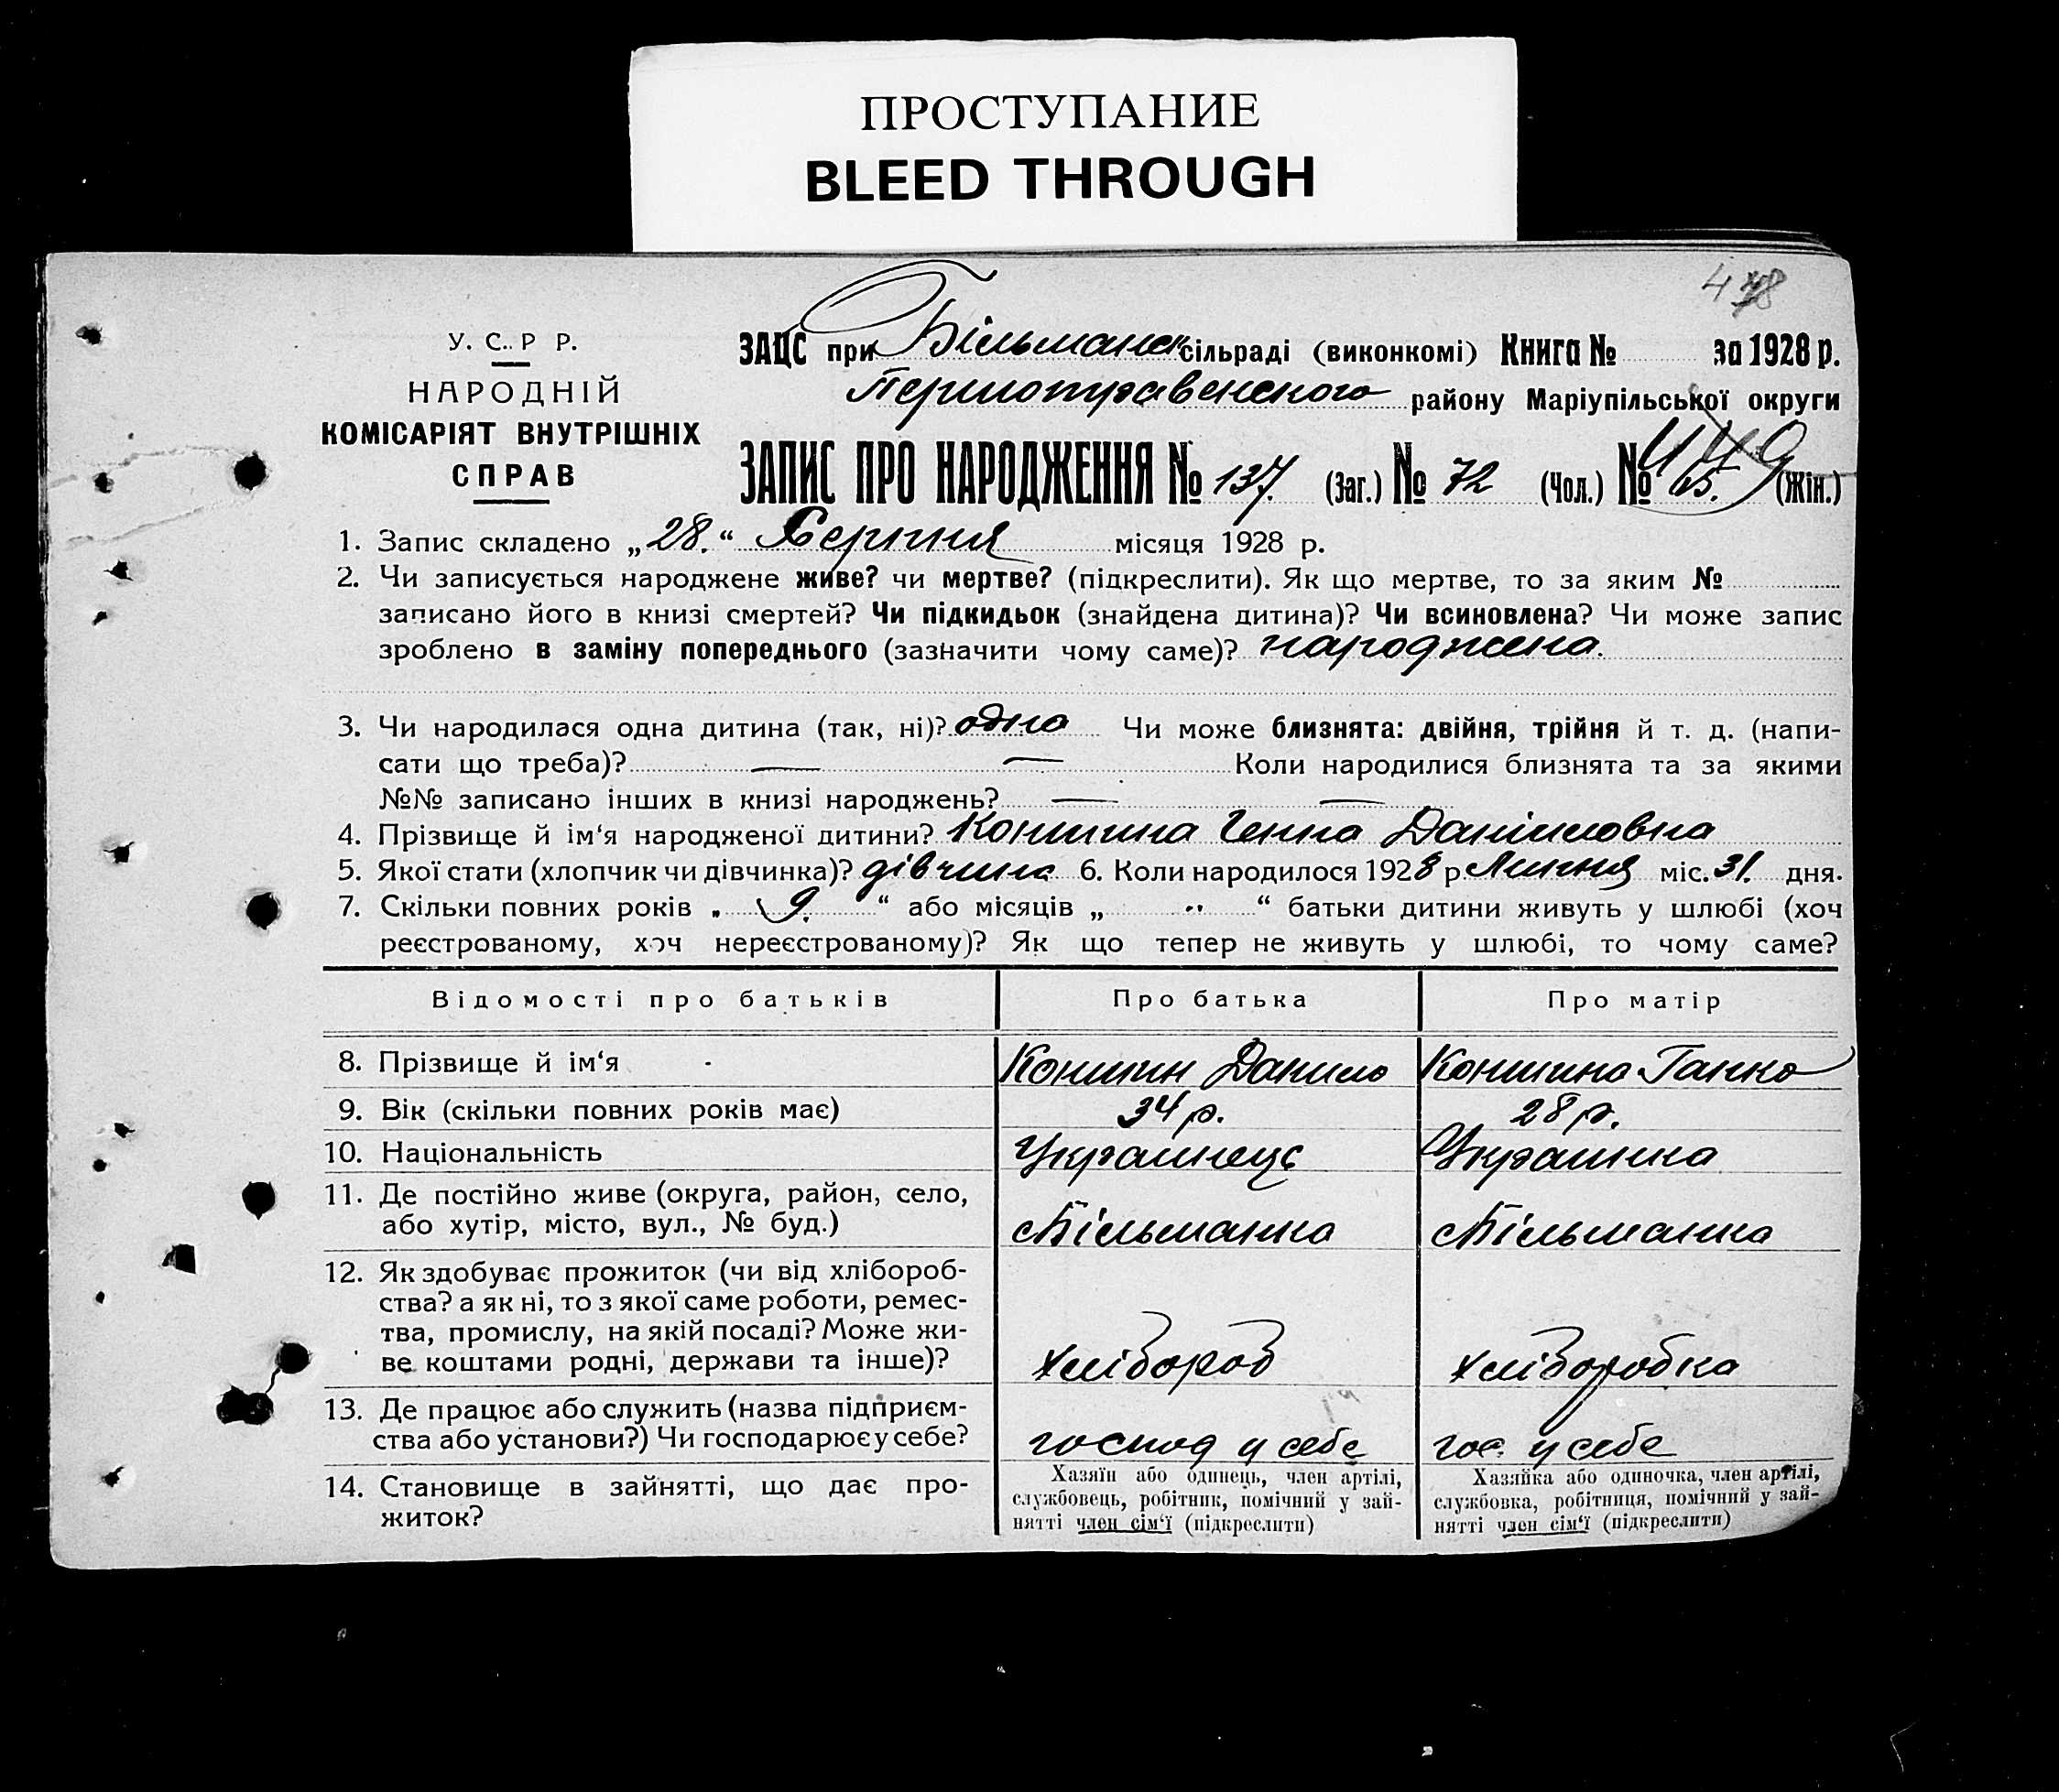 ПРОСТУПАНИЕ
BLEED THROUGH
У. С. Р Р.
НАРОДНІЙ
КОМІСАРІЯТ ВНУТРІШНІХ
СПРАВ
ЗАЦС при Більманск сільраді (виконкомі) Книга № за 1928 р.
Першотравенского району Маріупільської округи
ЗАПИС ПРО НАРОДЖЕННЯ № 137. (Заг.) № 72 (Чол.) № 65. (Жін.)
1. Запис складено „28.“ Серпня місяця 1928 р.
2. Чи записується народжене живе? чи мертве? (підкреслити). Як що мертве, то за яким №
записано його в книзі смертей? Чи підкидьок (знайдена дитина)? Чи всиновлена? Чи може запис
зроблено в заміну попереднього (зазначити чому саме)? народжена.
3. Чи народилася одна дитина (так, ні)? одна Чи може близнята: двійня, трійня й т. д. (напи-
сати що треба)? — — Коли народилися близнята та за якими
№№ записано інших в книзі народжень? — —
4. Прізвище й ім‘я народженої дитини? Коншина Данииловна
5. Якої стати (хлопчик чи дівчинка)? дівчина 6. Коли народилося 1928 р. Липня міс. 31. дня.
7. Скільки повних років „ 9. “ або місяців „ “ батьки дитини живуть у шлюбі (хоч
реєстрованому, хоч нереєстрованому)? Як що тепер не живуть у шлюбі, то чому саме?
Відомості про батьків Про батька Про матір
8. Прізвище й ім‘я Коншин Данило Коншина Ганна
9. Вік (скільки повних років має) 34 р. 28 р.
10. Національність Украинець Украинка
11. Де постійно живе (округа, район, село,
або хутір, місто, вул., № буд.) Більманка Більманка
12. Як здобуває прожиток (чи від хлібороб-
ства? а як ні, то з якої саме роботи, ремес-
тва, промислу, на якій посаді? Може жи-
ве коштами родні, держави та інше)? хлібороб хліборобка
13. Де працює або служить (назва підприєм-
ства або установи?) Чи господарює у себе? господ у себе гос. у себе
14. Становище в зайнятті, що дає про-
житок?
Хазяїн або одинець, член артілі,
службовець, робітник, помічний у зай-
нятті член сім‘ї (підкреслити)
Хазяйка або одиночка, член артілі,
службовка, робітниця, помічний у зай-
нятті член сім‘ї (підкреслити)